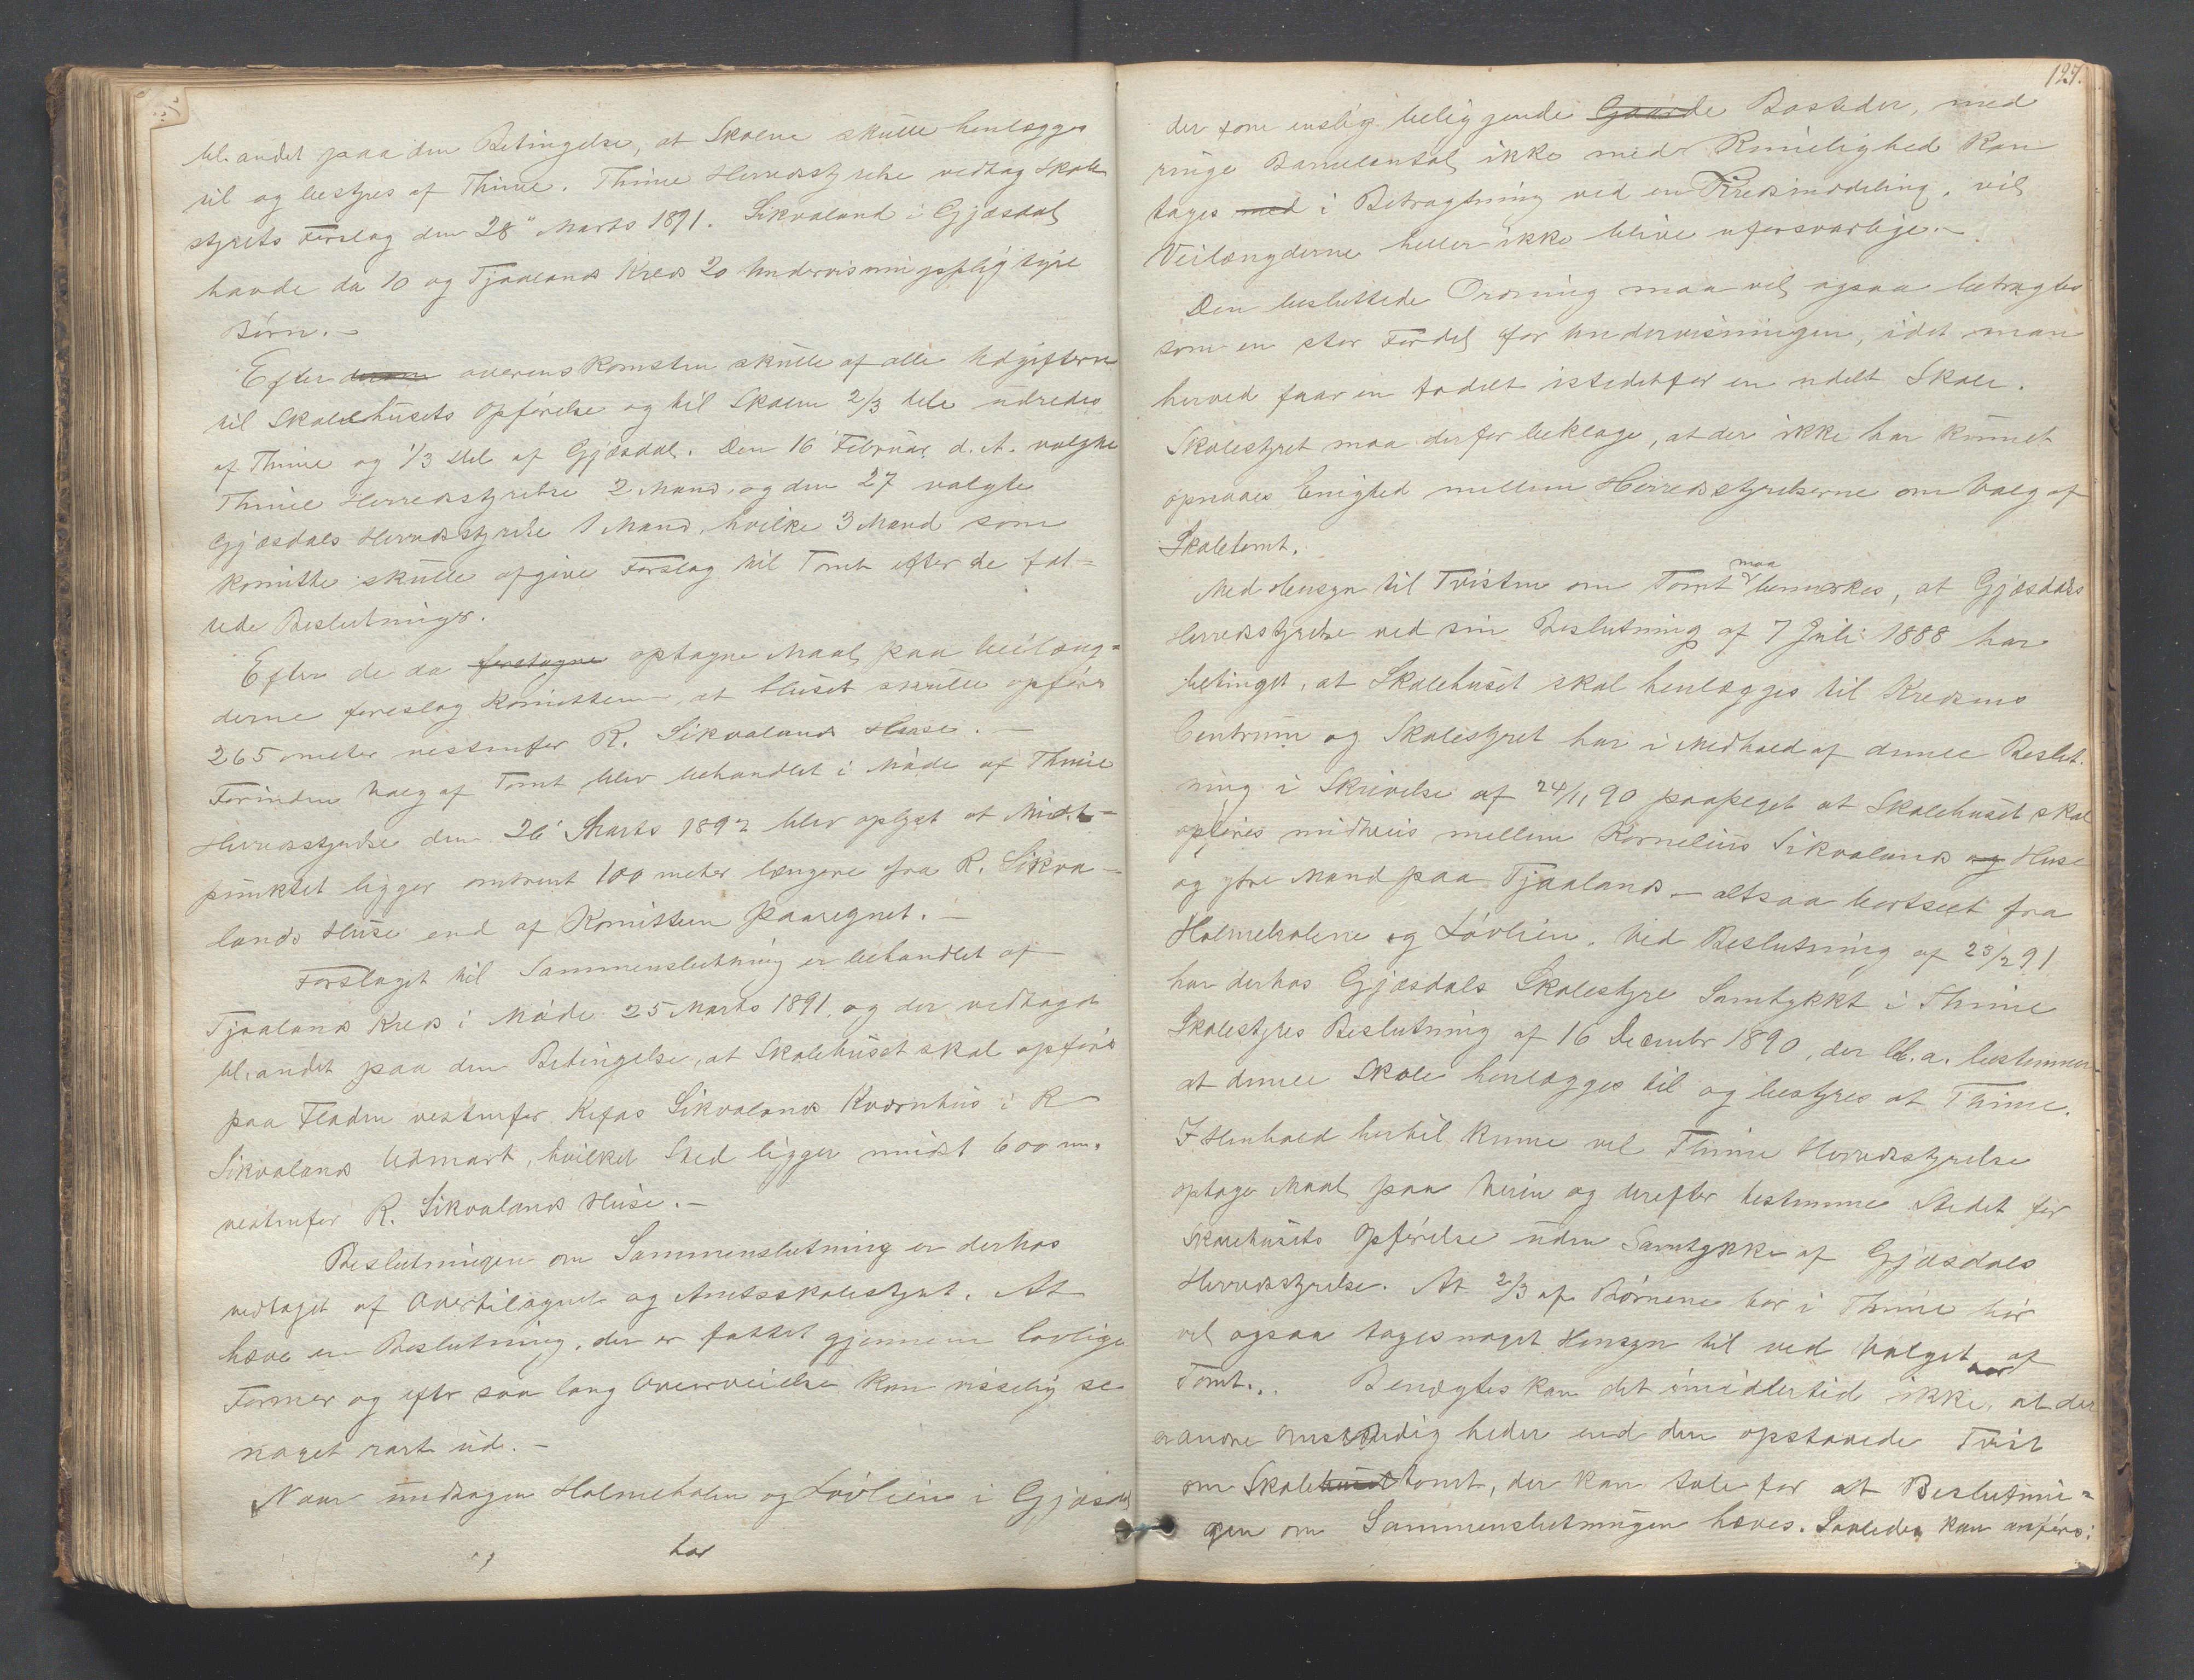 bl. andet paa den Betingelse, at Skolen skulle henlægges
til og bestyres af Thime. Thime Herredsstyrelse vedtog Skole
styrets Forslag den 28" Marts 1891. Sikvaland i Gjæsdal
havde da 10 og Tjaalands Kreds 20 Undervisningspligtige
Børn. -
Efter denne overenskomsten skulle af alle Udgifterne
til Skolehusets Opførelse og til Skolen 2/3 dele udredes
af Thime og 1/3 Del af Gjæsdal. Den 16 Februar d. A. valgte
Thime Herredsstyrelse 2 Mand, og den 27 valgte
Gjæsdals Herredsstyrelse 1 Mand, hvilke 3 Mand som
Komitte skulle afgive Forslag til Tomt efter de fat-
tede Beslutninger.
Efter de da foretagne optagne Maal paa Veilæng-
derne foreslog Komitteen, at Huset skulle opføres
265 meter vestenfor R. Sikvalands Huse. -
Forinden Valg af Tomt blev behandlet i Møde af Thime
Herredsstyrelse den 26' Marts 1892 blev oplyst at Midt-
punktet ligger omtrent 100 meter længere fra R. Sikva-
lands Huse end af Komitteen paaregnet. -
Forslaget til Sammenslutning er behandlet af
Tjaalands Kreds i Møde 25 Marts 1891, og der vedtaget
bl. andet paa den Betingelse, at Skolehuset skal opføres
paa Fladen vestenfor Kefas Sikvalands Kværnhus i R
Sikvalands Udmark, hvilket Sted ligger mindst 600 m.
vestenfor R. Sikvalands Huse. -
Beslutningen om Sammenslutning er derhos
vedtaget af Overtilsynet og Amtsskolestyret. At
hæve en Beslutning, der er fattet gjennem lovlige
Former og efter saa lang Overveielse kan visselig se
noget rart ud. -
Naar undtagen Holmeholen og Lövlien i Gjæsdal
har
127.
der som enslig beliggende Gaarde Bosteder, med
ringe Barneantal ikke med Rimelighed kan
tages med i Betragtning ved en Kredsinddeling, vil
Veilængderne heller ikke blive uforsvarlige. -
Den besluttede Ordning maa vel ogsaa betragtes
som en stor Fordel for Undervisningen, idet man
herved faar en todelt istedetfor en udelt Skole.
Skolestyret maa derfor beklage, at der ikke har kunnet
opnaaes Enighed mellem Herredsstyrelserne om Valg af
Skoletomt.
maa
Med Hensyn til Tvisten om Tomt bemærkes, at Gjæsdals
Herredsstyrelse ved sin Beslutning af 7 Juli 1888 har
betinget, at Skolehuset skal henlægges til Kredsens
Centrum og Skolestyret har i Medhold af denne Beslut.
ning i Skrivelse af 24/11 90 paapeget at Skolehuset skal
opføres midtveis mellem Kornelius Sikvalands og Huse
og ytre Mand paa Tjaaland - altsaa bortseet fra
Holmeholene og Lövlien. Ved Beslutning af 23/2 91
har derhos Gjæsdals Skolestyre Samtykkt i Thime
Skolestyres Beslutning af 16 Decembr 1890, der bl.a. bestemmer
at denne Skole henlægges til og bestyres af Thime.
I Henhold hertil kunne vel Thime Herredsstyrelse
optage Maal paa Veien og derefter bestemme Stedet for
Skolehusets Opførelse uden Samtykke af Gjæsdals
Herredsstyrelse. At 2/3 af Børnene bor i Thime bør
vel ogsaa tages noget Hensyn til ved Valget af
Tomt. Benægtes kan det imidlertid ikke, at der
er andre Omstændigheder end den opstaaede Tvist
om Skolehuset tomt, der kan tale for at Beslutnin-
gen om Sammenslutningen hæves. Saaledes kan anføres: